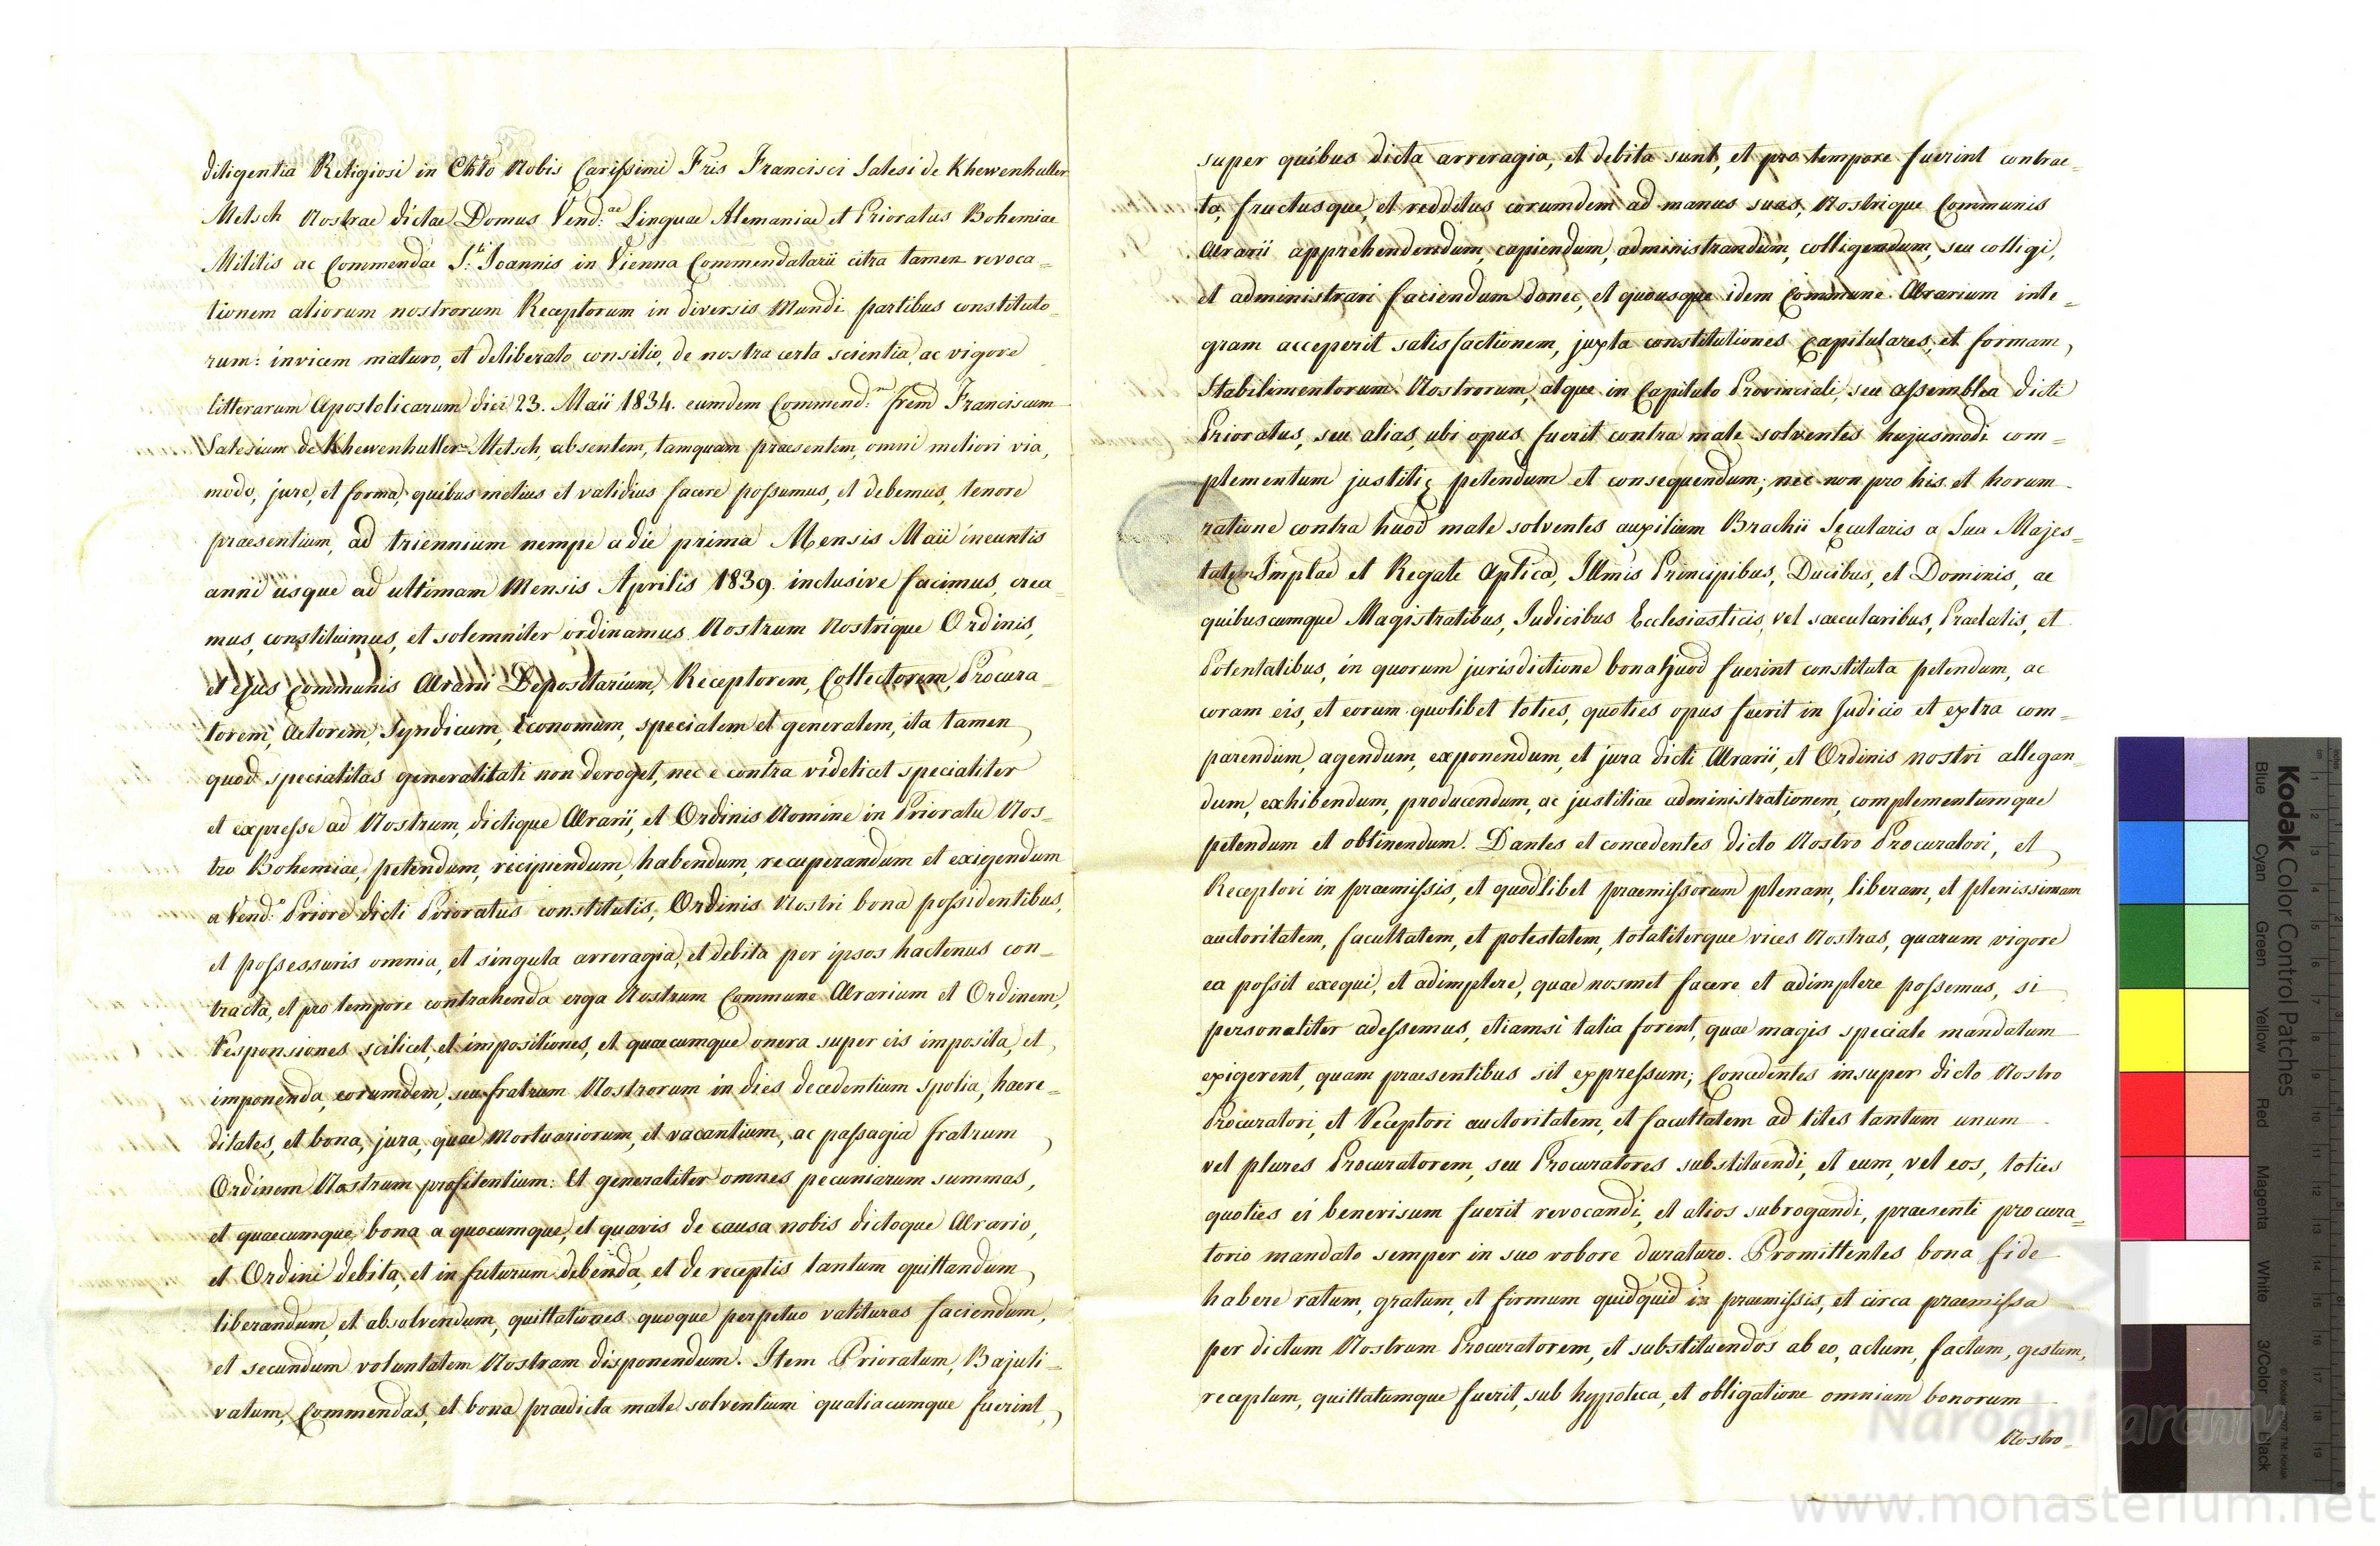 diligentia Religiosi in Chto Nobis Carissimi Fris Francisci Salesi de Khewenhuller
Metsch Nostrae dictae Domus Vend.ae Linguae Alemaniae et Prioratus Bohemiae
Militis ac Commendae S.ti Joannis in Vienna Commendatarii citra tamen revoca=
tionem aliorum nostrorum Receptorum in diversis Mundi partibus constituto=
rum: invicem maturo, et deliberato consilio, de nostra certa scientia, ac vigore
litterarum Apostolicarum diei 23. Maii 1834. eumdem Commend.m frem Franciscum
Salesium de Khewenhuller=Metsch, absentem, tamquam praesentem, omni meliori via,
modo, jure, et forma, quibus melius et validius facere possumus, et debemus, tenore
praesentium, ad triennium nempe a die prima Mensis Maii ineuntis
anni usque ad ultimam Mensis Aprilis 1839. inclusive facimus, crea=
mus, constituimus, et solemniter ordinamus Nostrum Nostrique Ordinis,
et ejus Communis Ærarii Depositarium, Receptorem, Collectorem, Procura=
torem, Actorem, Syndicum, Economum, specialem et generalem, ita tamen
quod specialitas generalitati non deroget, nec e contra videlicet specialiter
et expresse ad Nostrum, dictique Ærarii, et Ordinis Nomine in Prioratu Nos=
tro Bohemiae, petendum, recipiendum, habendum, recuperandum et exigendum
a Vend.o Priore dicti Prioratus constitutis, Ordinis Nostri bona possidentibus,
et possessuris omnia, et singula arreragia, et debita per ipsos hactenus con=
tracta, et pro tempore contrahenda erga Nostrum Commune Ærarium et Ordinem,
Responsiones scilicet, et impositiones, et quaecumque onera super eis imposita, et
imponenda, eorumdem, seu fratrum Nostrorum in dies decedentium Spolia, haere=
ditates, et bona, jura, quae Mortuariorum, et vacantium, ac passagia fratrum
Ordinem Nostrum profitentium: Et generaliter omnes pecuniarum summas,
et quaecumque bona a quocumque, et quavis de causa nobis dictoque Ærario,
et Ordini debita, et in futurum debenda, et de receptis tantum quittandum,
liberandum, et absolvendum, quittationes quoque perpetuo valituras faciendum,
et secundum voluntatem Nostram disponendum. Item Prioratum, Bajuli=
vatum, Commendas, et bona praedicta male solventium qualiacumque fuerint,
super quibus dicta arreragia, et debita sunt, et pro tempore fuerint contrac=
ta, fructusque, et redditus eorumdem ad manus suas, Nostrique Communis
Ærarii apprehendendum, capiendum, administrandum, colligendum, seu colligi,
et administrari faciendum donec, et quousque idem Commune Ærarium inte=
gram acceperit satisfactionem, juxta constitutiones Capitulares, et formam,
Stabilimentorum Nostrorum, atque in Capitulo Provinciali, seu assemblea dicti
Prioratus, seu alias, ubi opus fuerit contra male solventes hujusmodi com=
plementum justitię petendum et consequendum; nec non pro his et horum
ratione contra huod male solventes auxilium Brachii Secularis a Sua Majes=
tate Implae et Regale Aplica, Illmis Principibus, Ducibus, et Dominis, ac
quibuscumque Magistratibus, Judicibus Ecclesiasticis, vel saecularibus, Praelatis, et
Potentatibus, in quorum jurisdictione bona huod fuerint constituta petendum, ac
coram eis, et eorum quolibet toties, quoties opus fuerit in Judicio et extra com=
parendum, agendum, exponendum, et jura dicti Ærarii, et Ordinis nostri allegan=
dum, exhibendum, producendum, ac justitiae administrationem, complementumque
petendum et obtinendum. Dantes et concedentes dicto Nostro Procuratori, et
Receptori in praemissis, et quodlibet praemissorum plenam, liberam, et plenissimam
auctoritatem, facultatem, et potestatem, totaliterque vices Nostras, quarum vigore
ea possit exequi, et adimplere, quae nosmet facere et adimplere possemus, si
personaliter adessemus, etiamsi talia forent, quae magis speciale mandatum
exigerent, quam praesentibus sit expressum; Concedentes insuper dicto Nostro
Procuratori, et Receptori auctoritatem, et facultatem ad lites tantum unum
vel plures Procuratorem, seu Procuratores substituendi, et eum, vel eos, toties
quoties ei benevisum fuerit revocandi, et alios subrogandi, praesenti procura=
torio mandato semper in suo robore duraturo. Promittentes bona fide
habere ratum, gratum, et firmum quidquid in praemissis, et circa praemissa
per dictum Nostrum Procuratorem, et substituendos ab eo, actum, factum, gestum,
receptum, quittatumque fuerit, sub hypoteca, et obligatione omnium bonorum
Nostro=
Kodak Color Control Patches
Blue Cyan Green Yellow Red Magenta White 3/Color Black
Národní archiv
www.monasterium.net